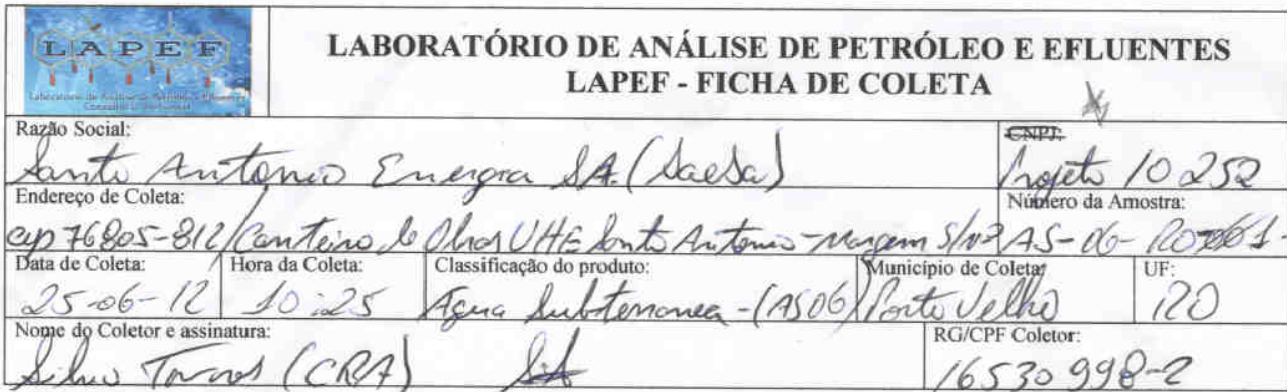 LAPEF
LABORATÓRIO DE ANÁLISE DE PETRÓLEO E EFLUENTES
LAPEF - FICHA DE COLETA
Razão Social:
Santo Antonio Energia SA. (Saesa)
CNPJ:
Projeto 10252
Endereço de Coleta:
cep 76805-812/Canteiro de Obras UHE Santo Antonio - Margem S/nº
Número da Amostra:
AS-06-
Data de Coleta:
25-06-12
Hora da Coleta:
10:25
Classificação do produto:
Agua Subterranea - (AS06)
Município de Coleta:
Porto Velho
UF:
RO
Nome do Coletor e assinatura:
Silvio Torres (CRA)
RG/CPF Coletor:
16530998-2